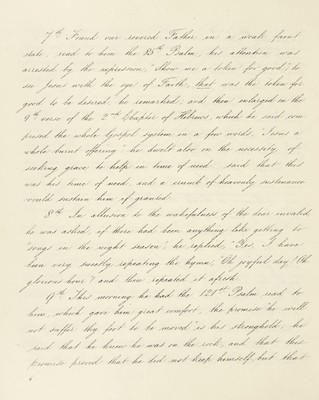 7th Found our revered Father in a weak faint
state, read to him the 85th Psalm, his attention was
arrested by the expression, "Shew me a token for good," to
see Jesus with the eye of Faith, that was the token for
good to be desired, he remarked, and then enlarged on the
9th verse of the 2nd Chapter of Hebrews, which he said com
prised the whole Gospel system in a few words, "Jesus a
whole burnt offering" he dwelt also on the necessity of
seeking grace to help in time of need, said that this
was his time of need, and a crumb of heavenly sustenance
would sustain him if granted.
8th In allusion to the wakefulness of the dear invalid
he was asked, if there had been anything like getting to
"songs in the night season", he replied, "Yes, I have
been very sweetly repeating the hymn, "Oh joyful day! Oh
glorious hour"! and then repeated it afresh.
9th This morning he had the 121st Psalm read to
him, which gave him great comfort, the promise "he will
not suffer thy foot to be moved" is his stronghold, he
said that he knew he was on the rock, and that this
promise proved that he did not keep himself, but that